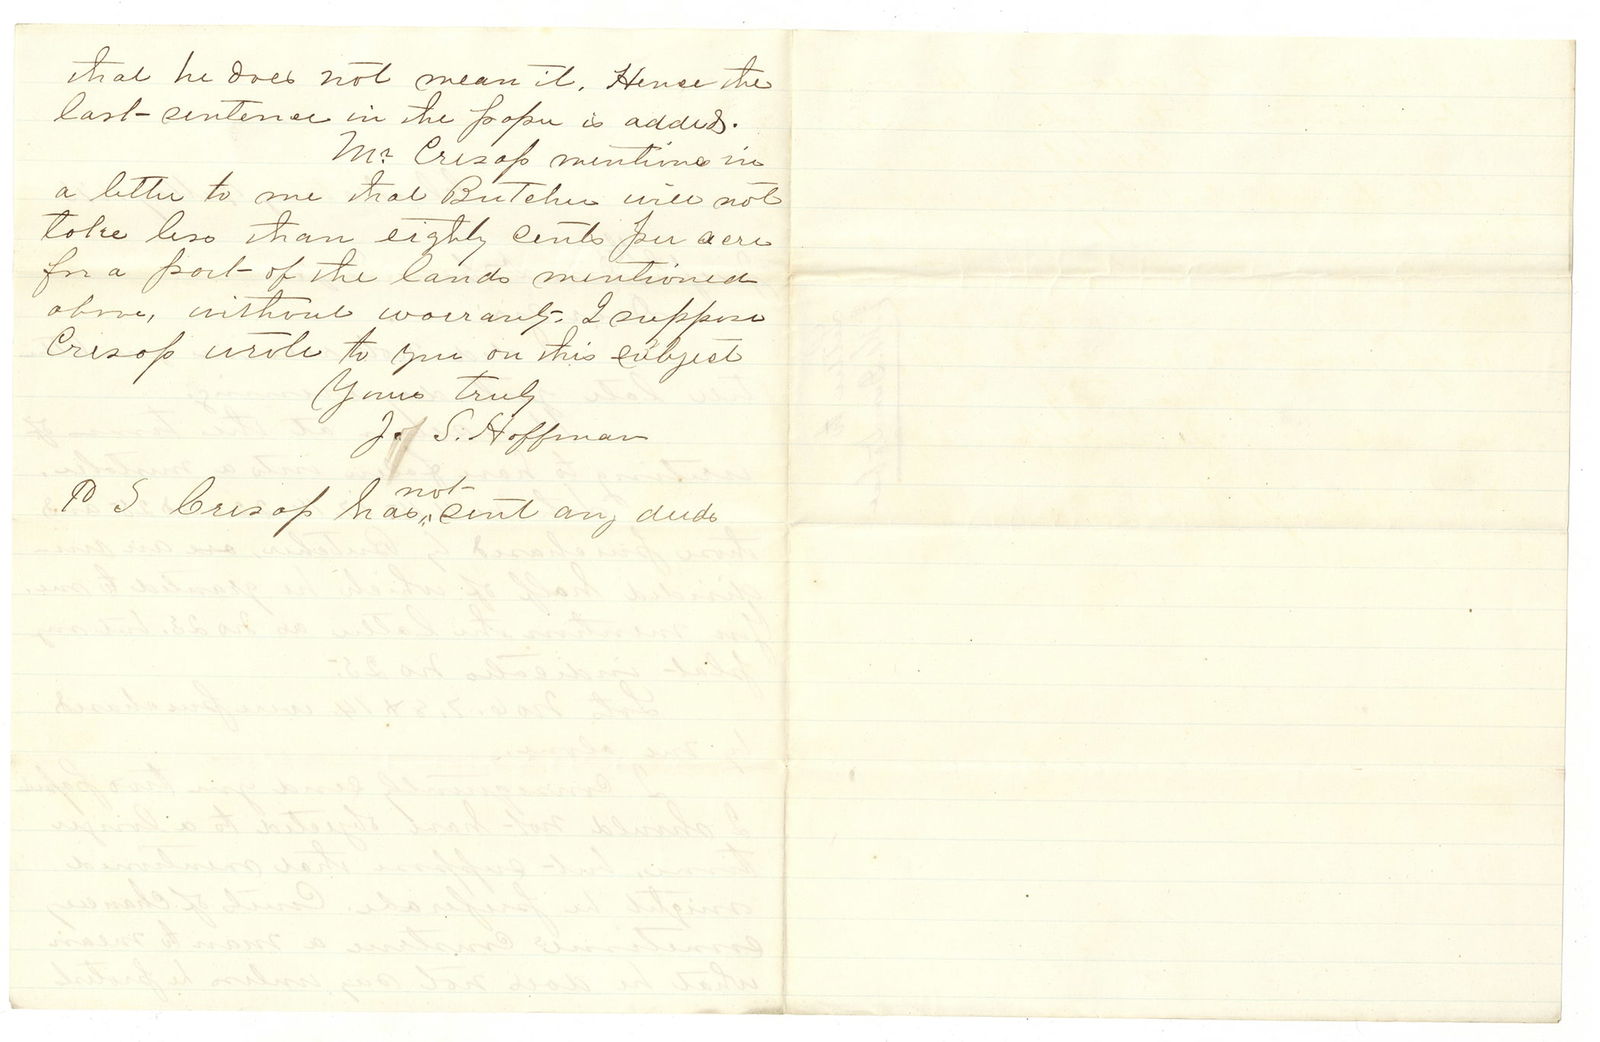 that he does not mean it. Hence the
last sentence in the paper is added.
Mr. Cresap mentions in
a letter to me that Butcher will not
take less than eighty cents per acre
for a part of the lands mentioned
above, without warranty. I suppose
Cresap wrote to you on this subject
Yours truly
J. S. Hoffman
P S Cresap has not sent any deeds